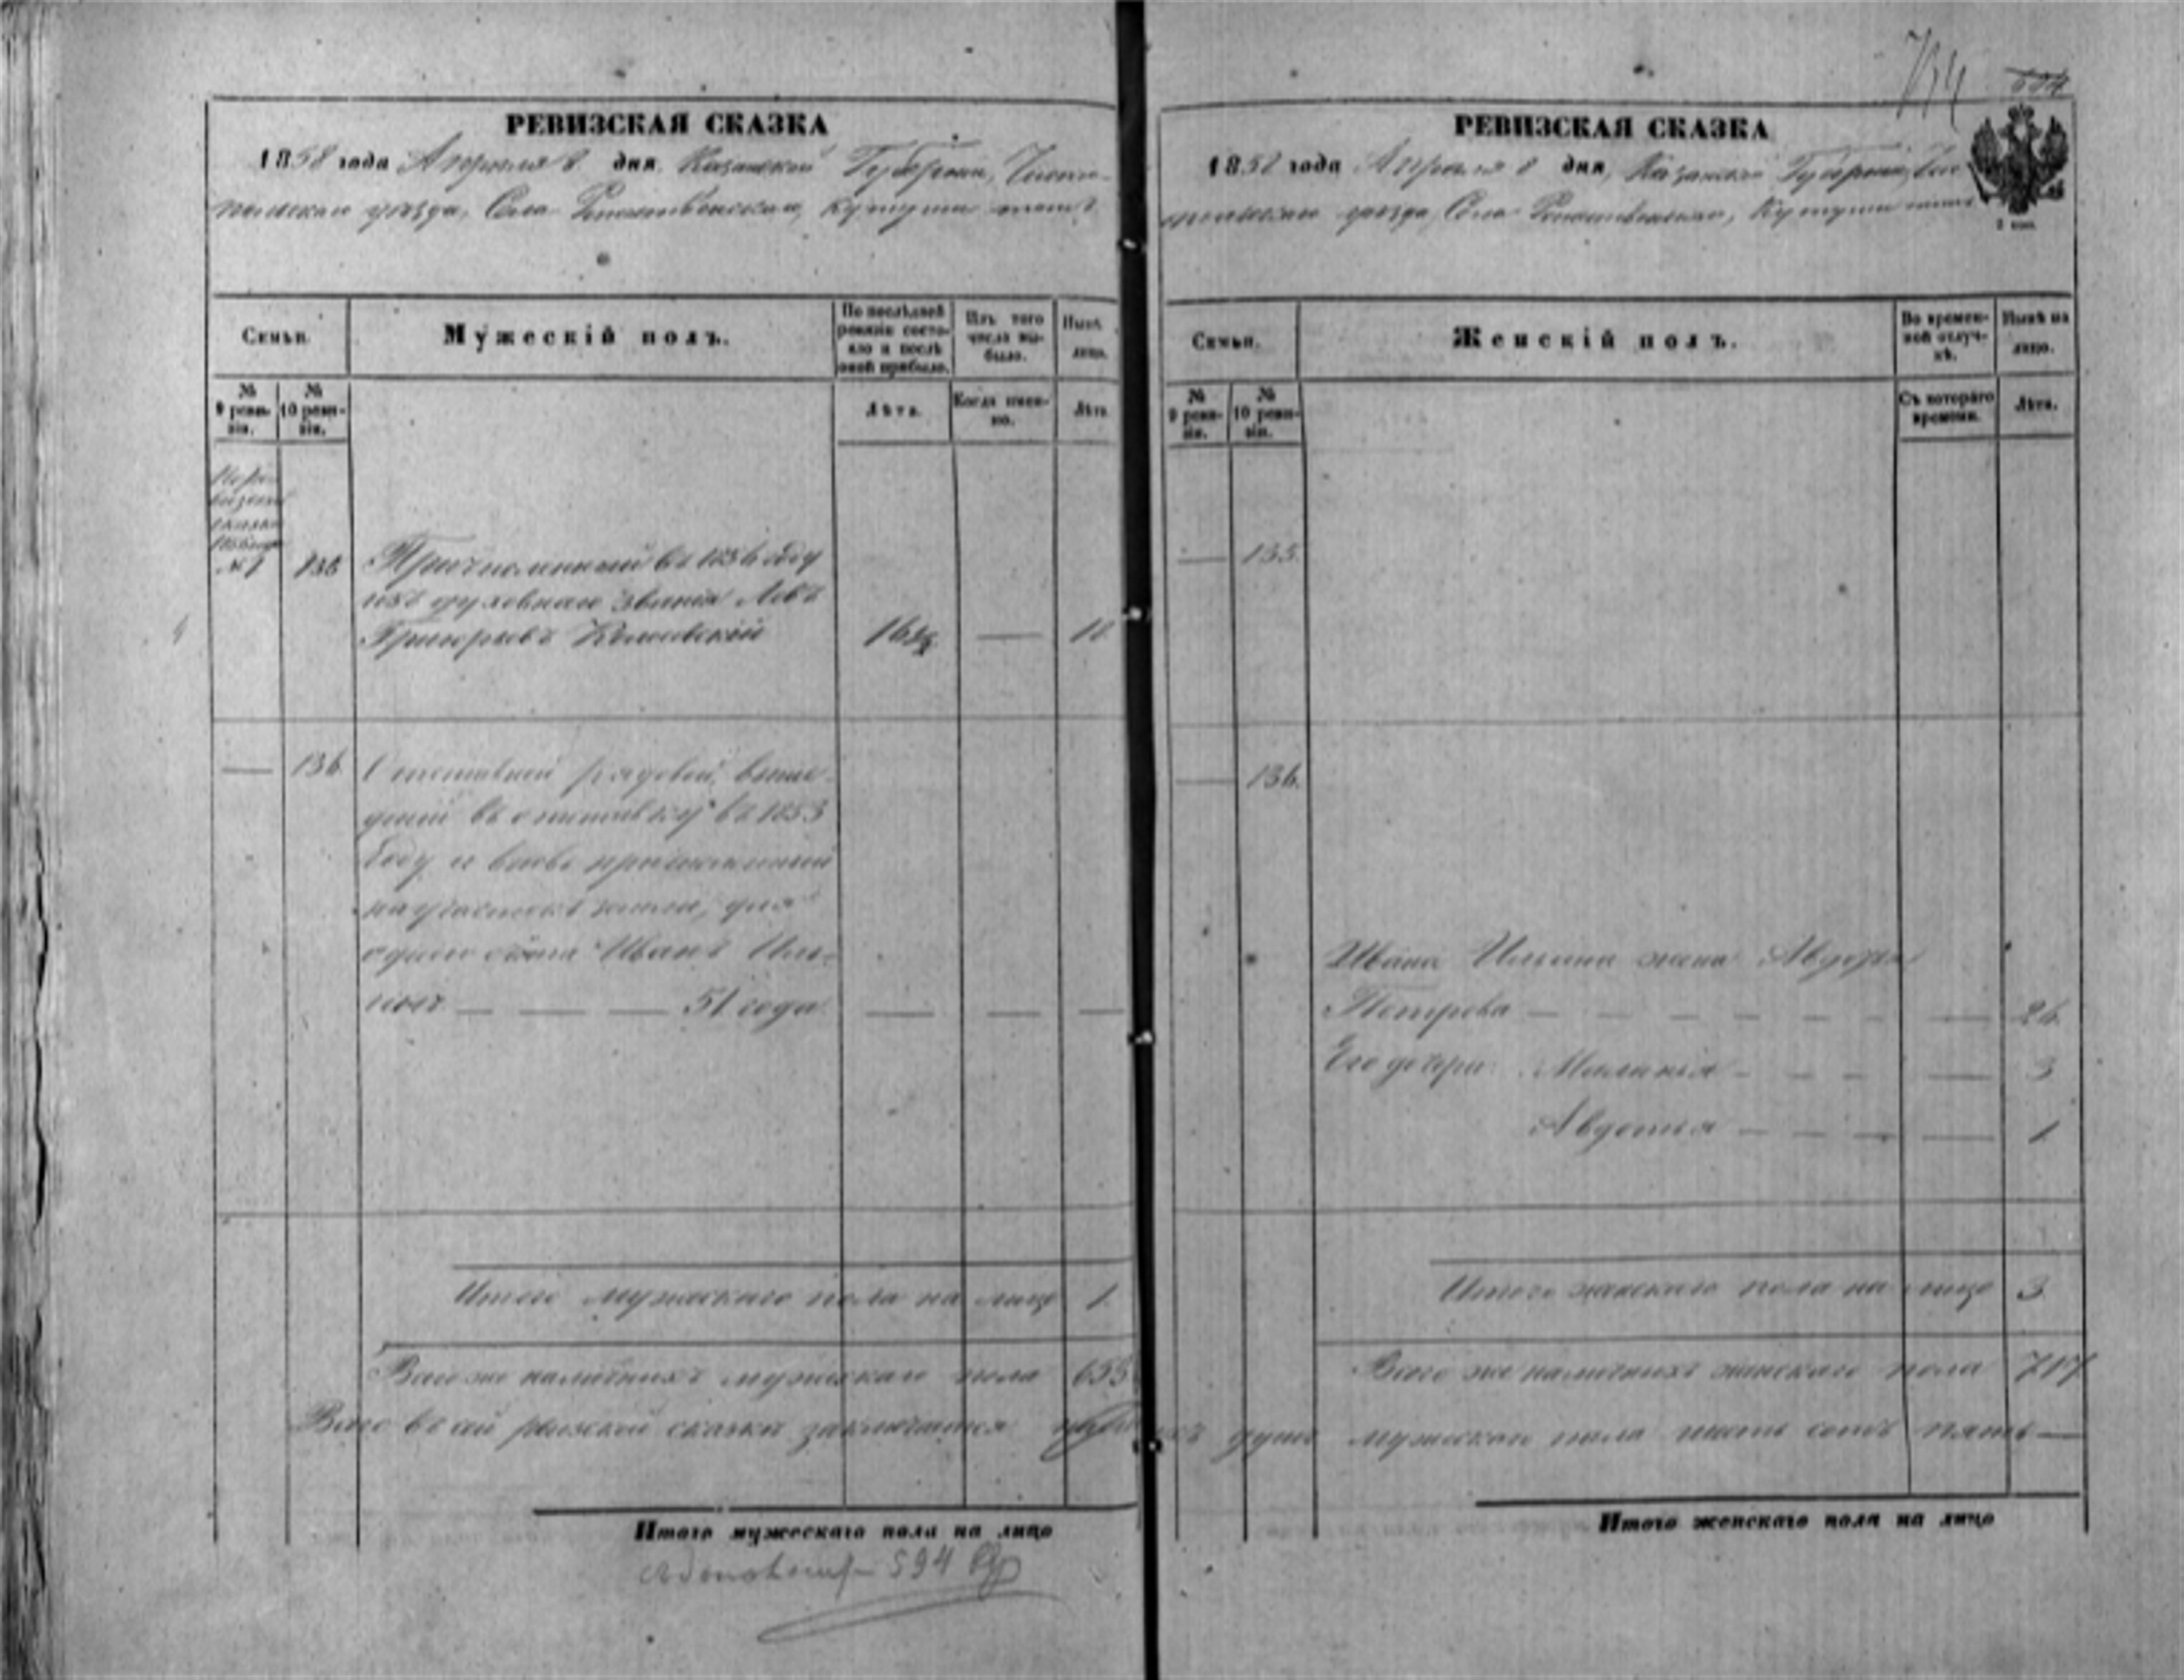 РЕВИЗСКАЯ СКАЗКА
1858 года Апреля 8 дня, Казанской Губернии, Чисто-
польскаго уезда, Села Рождественскаго, Кутуши тожъ
Семьи.
Мужескій полъ.
По послѣдней ревизіи состо-
яло и послѣ оной прибыло.
Изъ того числа вы-
было.
Нынѣ лицо.
№ 9 реви-
зіи.
№ 10 реви-
зіи.
Лѣта.
Когда имен-
но.
Лѣта
№ 1
135
Причисленный въ 1856 году
изъ духовнаго званія Левъ
Григорьевъ
—
136.
Отставной рядовой, выше-
дшій въ отставку въ 1853
году и вновь причисленный
на участокъ земли, для
одного Иванъ Иль-
инъ — — — 51 года — — —
Итого мужескаго пола на лицо 1.
Всего же наличныхъ мужескаго пола 655
Всего въ сей ревизской сказке заключается
Итого мужескаго пола на лицо
594
РЕВИЗСКАЯ СКАЗКА
1858 года Апреля 8 дня, Казанской Губерніи, Чис-
топольскаго уезда, Села Рождественскаго, Кутуши тожъ
Семьи.
Женскій полъ.
Во времен-
ной отлуч-
кѣ.
Нынѣ на лицо.
№ 9 реви-
зіи.
№ 10 реви-
зіи.
Съ котораго времени.
Лѣта.
— 135.
— 136.
Ивана Ильина жена Авдотья
Петрова — — — — — — — 26.
Его дочери: Маланья — — — — 3
Авдотья — — — — — 1
Итого женскаго пола на лицо 3.
Всего же наличныхъ женскаго пола 717
душъ мужескаго пола шесть сотъ пять —
Итого женскаго пола на лицо